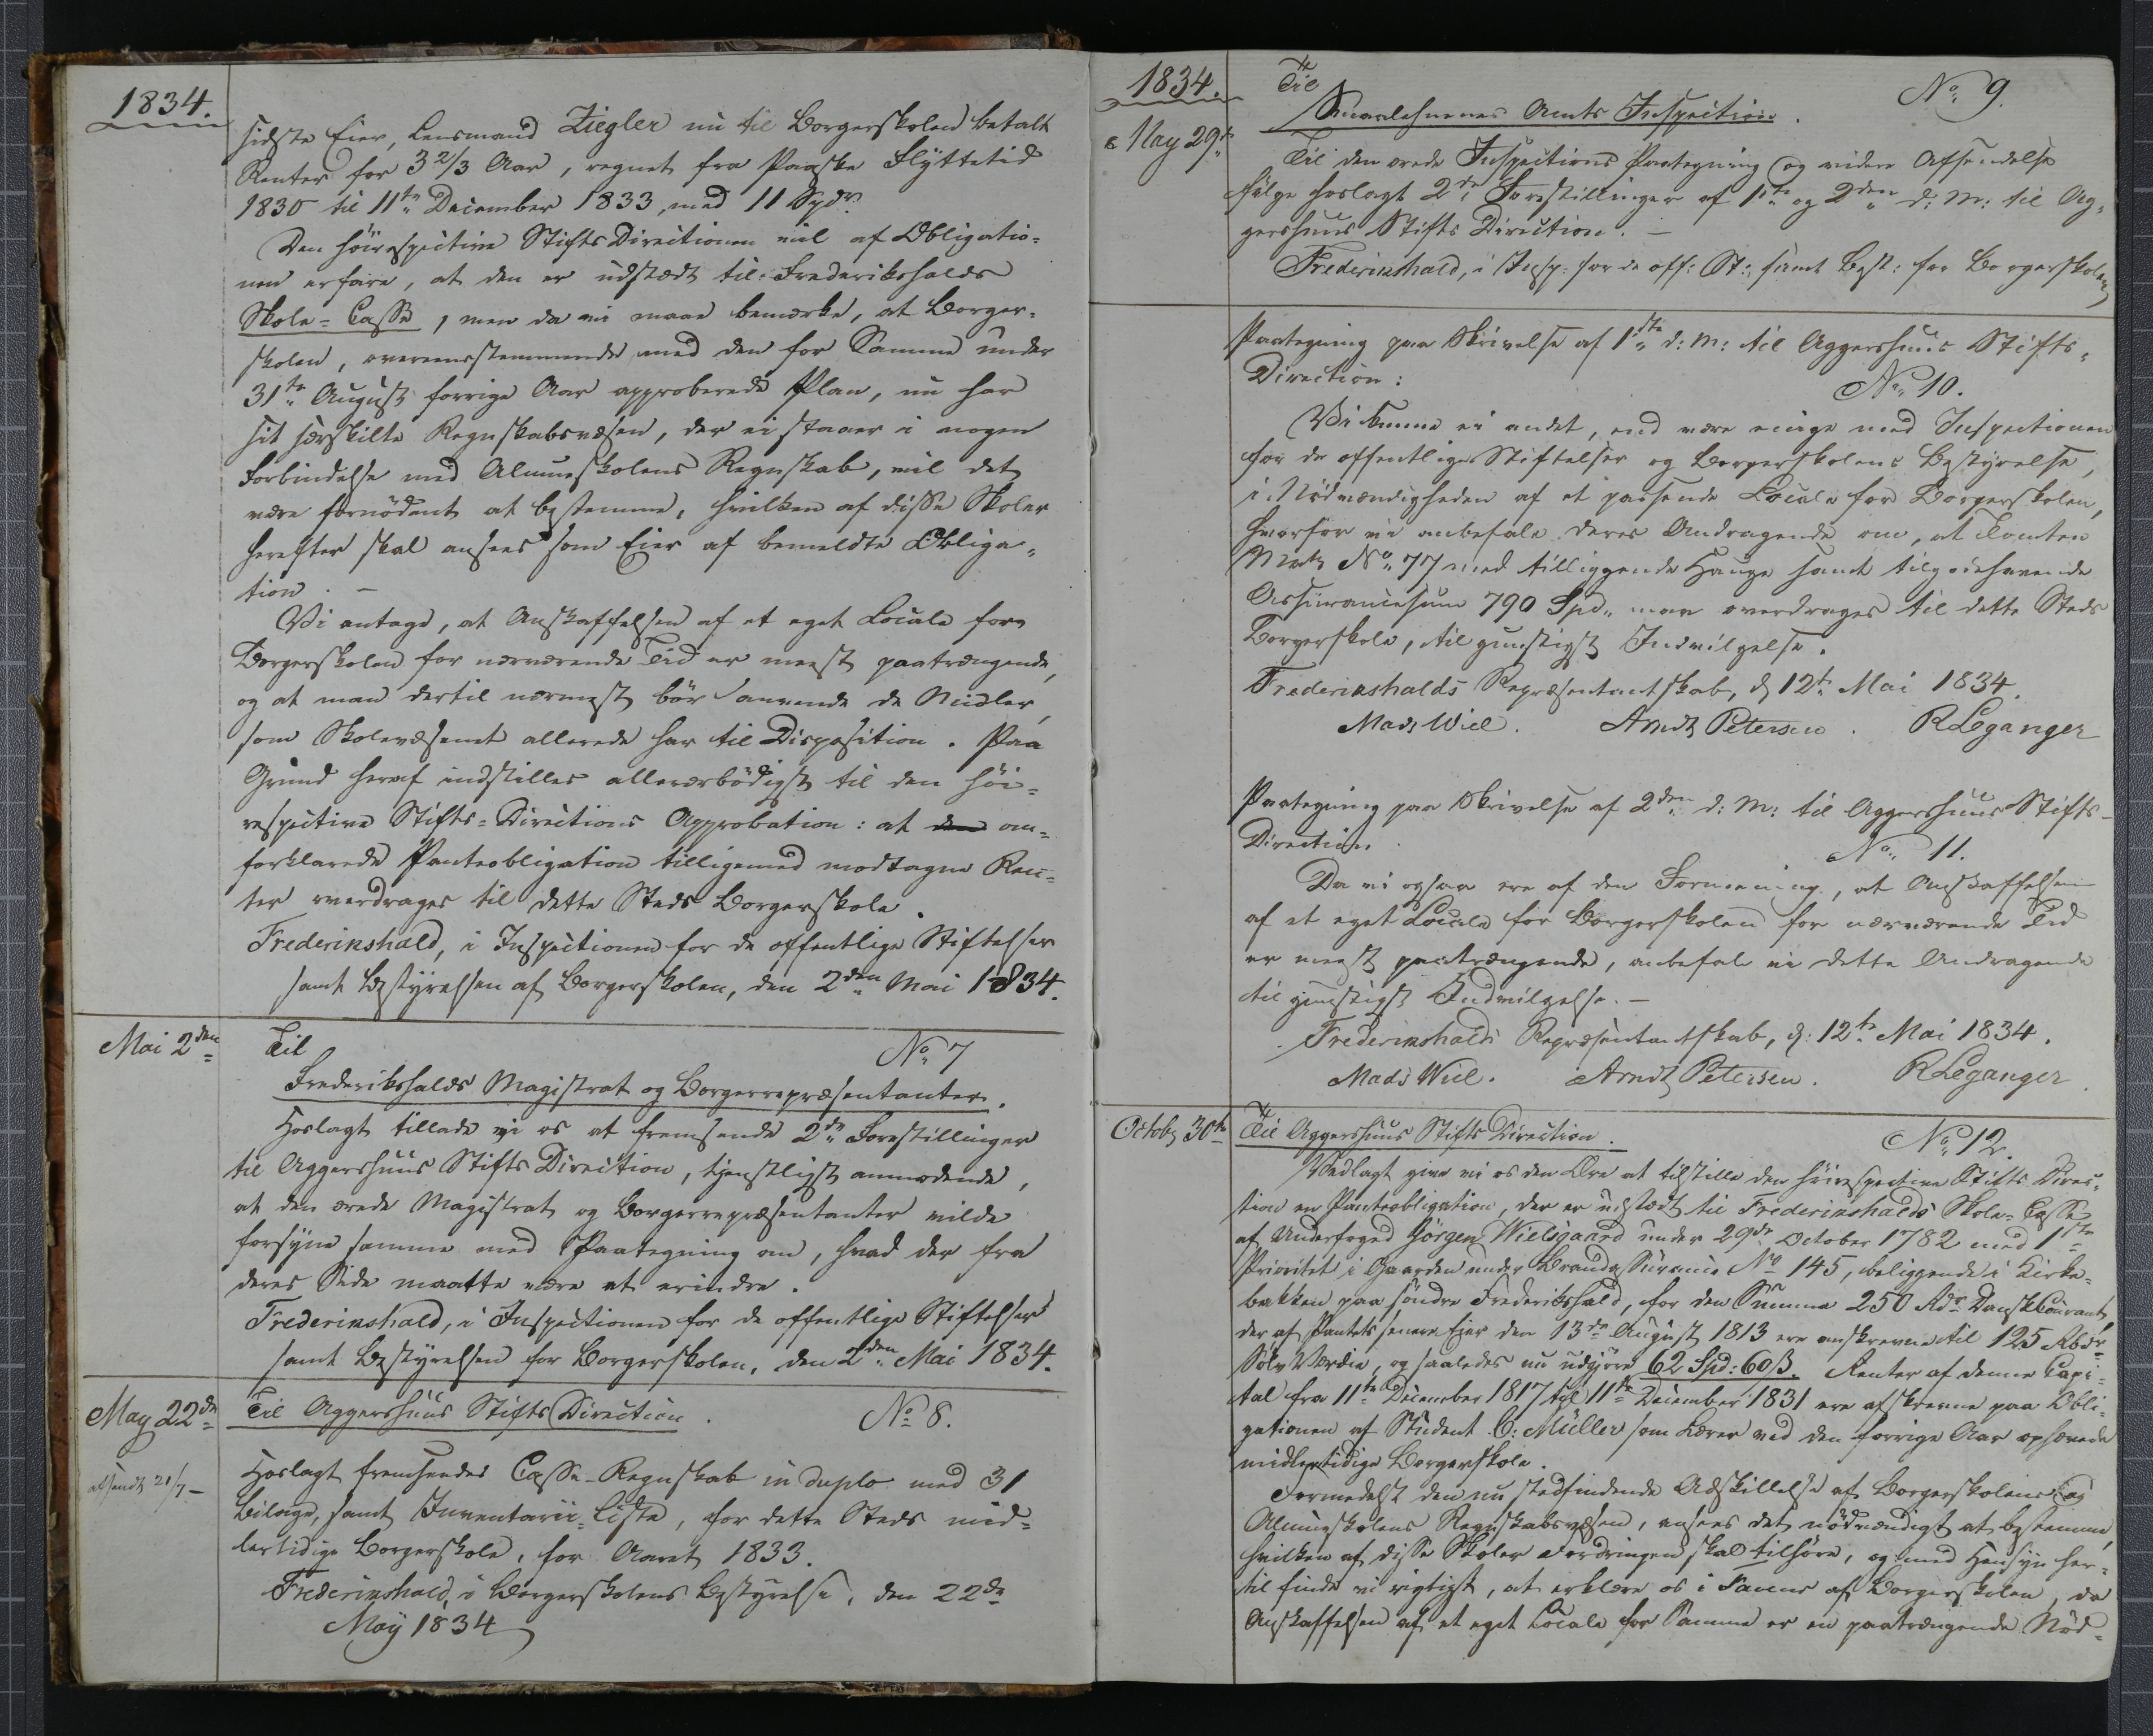 1834.
sidste Eier, Lensmand Ziegler nu til Borgerskolen betalt
Renter for 3 2/3 Aar, regnet fra Paaske Flyttetid
1830 til 11te December 1833, med 11 Spdr.
Den höirespective Stifts Directionen vil af Obligatio-
nen erfare, at den er udstædt til Frederikshalds
Skole-Casse, men da vi maae bemærke, at Borger-
skolen, overeensstemmende med den for Samme under
31te August forrige Aar approberede Plan, nu har
sit særskilte Regnskabsvæsen, der ei staaer i nogen
Forbindelse med Almueskolens Regnskab, vil det
være fornödent at bestemme, hvilken af disse Skoler
herefter skal ansees som Eier af bemeldte Obliga-
tion. –
Vi antage, at Anskaffelsen af et eget Locale for
Borgerskolen for nærværende Tid er meest paatrængende,
og at man dertil nærmest bör anvende de Midler,
som Skolevæsenet allerede har til Disposition. Paa
Grund heraf indstilles allerærbödigst til den höi-
respective Stifts-Directions Approbation: at den om-
forklarede Panteobligation tilligemed modtagne Ren-
ter overdrages til dette Steds Borgerskole.
Frederikshald, i Inspectionen for de offentlige Stiftelser
samt Bestyrelsen af Borgerskolen, den 2den Mai 1834.
Mai 2den
Til No 7
Frederikshalds Magistrat og Borgerrepræsentanter.
Hoslagt tillade vi os at fremsende 2de Forestillinger
til Aggershuus Stifts Direction, tjenstligst anmodende,
at den ærede Magistrat og Borgerrepræsentanter vilde
forsyne samme med Paategning om, hvad der fra
deres Side maatte være at erindre.
Frederikshald, i Inspectionen for de offentlige Stiftelser
samt Bestyrelsen for Borgerskolen, den 2den Mai 1834.
May 22de
Til Aggershuus Stifts Direction. No 8.
afsendt 21/7 –
Hoslagt fremsendes Casse-Regnskab in duplo med 31
Bilage, samt Inventarii-Liste, for dette Steds mid-
lertidige Borgerskole, for Aaret 1833.
Frederikshald, i Borgerskolens Bestyrelse, den 22de
May 1834
1834.
Til No 9.
Smaalehnenes Amts Inspection.
May 29de
Til den ærede Inspections Paategning og videre Afsendelse
fölge hoslagt 2de Forestillinger af 1ste og 2den d: M: til Ag-
gershuus Stifts Direction. –
Frederikshald, i Insp: for de off: St:, samt Best: for Borgerskolen
Paategning paa Skrivelse af 1ste d: M: til Aggershuus Stifts-
Direction: No 10.
Vi kunne ei andet, end være enige med Inspectionen
for de offentlige Stiftelser og Borgerskolens Bestyrelse,
i Nödvændigheden af et passende Locale for Borgerskolen,
hvorfor vi anbefale deres Andragende om, at Tomten
Matr. No 77 med tilliggende Hauge samt tilgodehavende
Assurancesum 790 Spd. maa overdrages til dette Steds
Borgerskole, til gunstigst Indvilgelse.
Frederikshalds Repræsentantskab, d 12te Mai 1834.
Mads Wiel. Arndt Petersen. R Leganger
Paategning paa Skrivelse af 2den d: M: til Aggershuus Stifts-
Direction. No 11.
Da vi ogsaa ere af den Formening, at Anskaffelsen
af et eget Locale for Borgerskolen for nærværende Tid
er meest paatrængende, anbefale vi dette Andragende
til gunstigst Indvilgelse. –
Frederikshalds Repræsentantskab, d: 12te Mai 1834.
Mads Wiel. Arndt Petersen. R Leganger
Octobr 30te
Til Aggershuus Stifts Direction. No 12.
Vedlagt give vi os den Ære at tilstille den höirespective Stifts Direc-
tion en Panteobligation, der er udstædt til Frederikshalds Skole-Casse
af Underfoged Jörgen Wielsgaard under 29de October 1782 med 1ste
Prioritet i Gaarden under Brandassurance No 145, beliggende i Kirke-
bakken paa söndre Frederikshald, for den Summa 250 Rdr Dansk Courant,
der af Pantets senere Eier den 13de August 1813 ere omskrevne til 125 Rbdr
Sölv Værdie, og saaledes nu udgjöre 62 Spd: 60 ß. Renter af denne Capi-
tal fra 11te December 1817 til 11te December 1831 ere afskrevne paa Obli-
gationen af Student C: Müller som Lærer ved den forrige Aar ophævede
midlertidige Borgerskole.
Formedelst den nu stedfindende Adskillelse af Borgerskolens og
Almueskolens Regnskabsvæsen, ansees det nödvændigt at bestemme,
hvilken af disse Skoler Fordringen skal tilhöre, og med Hensyn her-
til finde vi rigtigst, at erklære os i Faveur af Borgerskolen, da
Anskaffelsen af et eget Locale for Samme er en paatrængende Nöd-